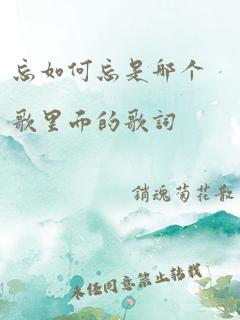 忘如何忘是那个
歌里面的歌词
銷魂菊花散
未经同意禁止转载